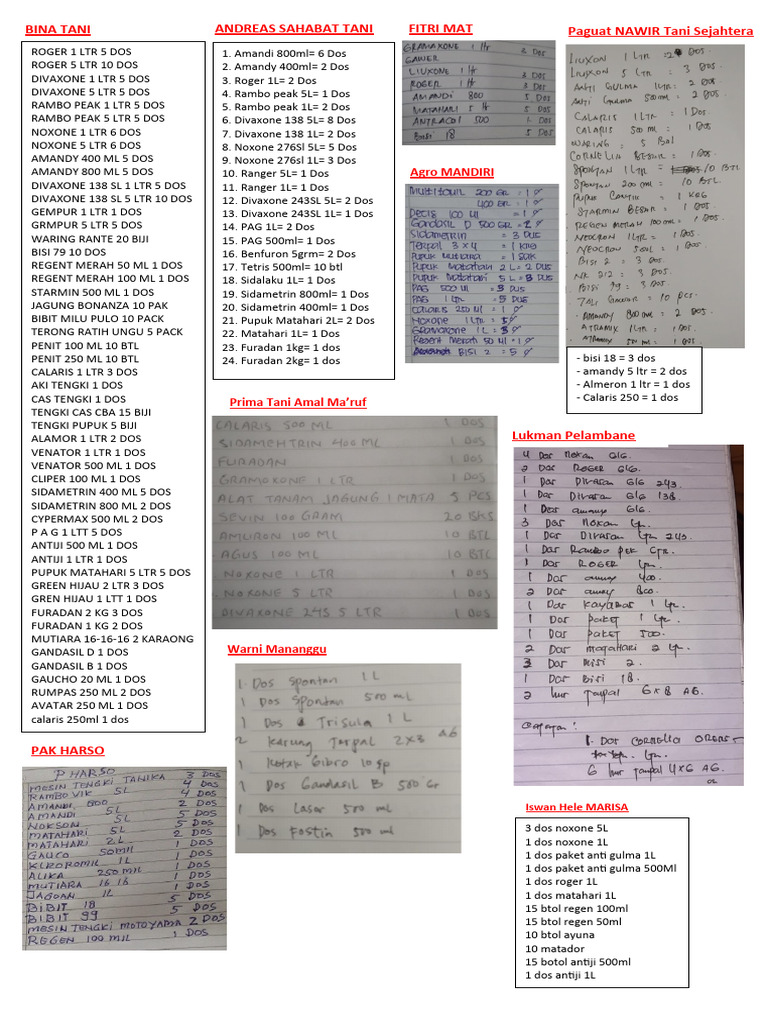 BINA TANI
ROGER 1 LTR 5 DOS
ROGER 5 LTR 10 DOS
DIVAXONE 1 LTR 5 DOS
DIVAXONE 5 LTR 5 DOS
RAMBO PEAK 1 LTR 5 DOS
RAMBO PEAK 5 LTR 5 DOS
NOXONE 1 LTR 6 DOS
NOXONE 5 LTR 6 DOS
AMANDY 400 ML 5 DOS
AMANDY 800 ML 5 DOS
DIVAXONE 138 SL 1 LTR 5 DOS
DIVAXONE 138 SL 5 LTR 10 DOS
GEMPUR 1 LTR 1 DOS
GRMPUR 5 LTR 5 DOS
WARING RANTE 20 BIJI
BISI 79 10 DOS
REGENT MERAH 50 ML 1 DOS
REGENT MERAH 100 ML 1 DOS
STARMIN 500 ML 1 DOS
JAGUNG BONANZA 10 PAK
BIBIT MILU PULO 10 PACK
TERONG RATIH UNGU 5 PACK
PENIT 100 ML 10 BTL
PENIT 250 ML 10 BTL
CALARIS 1 LTR 3 DOS
AKI TENGKI 1 DOS
CAS TENGKI 1 DOS
TENGKI CAS CBA 15 BIJI
TENGKI PUPUK 5 BIJI
ALAMOR 1 LTR 2 DOS
VENATOR 1 LTR 1 DOS
VENATOR 500 ML 1 DOS
CLIPER 100 ML 1 DOS
SIDAMETRIN 400 ML 5 DOS
SIDAMETRIN 800 ML 2 DOS
CYPERMAX 500 ML 2 DOS
P A G 1 LTT 5 DOS
ANTIJI 500 ML 1 DOS
ANTIJI 1 LTR 1 DOS
PUPUK MATAHARI 5 LTR 5 DOS
GREEN HIJAU 2 LTR 3 DOS
GREN HIJAU 1 LTT 1 DOS
FURADAN 2 KG 3 DOS
FURADAN 1 KG 2 DOS
MUTIARA 16-16-16 2 KARAONG
GANDASIL D 1 DOS
GANDASIL B 1 DOS
GAUCHO 20 ML 1 DOS
RUMPAS 250 ML 2 DOS
AVATAR 250 ML 1 DOS
calaris 250ml 1 dos
PAK HARSO
P HARSO
MESIN TENGKI TANIKA 3 DOS
RAMBO VIK 5L 4 DOS
AMANDI 800 4 DOS
AMANDI 5L 2 DOS
NOKSON 5L 5 DOS
MATAHARI 5L 5 DOS
MATAHARI 2L 2 DOS
GAUCO 50 Mil 1 DOS
1L 1 DOS
ALIKA 250 Mil 1 DOS
MUTIARA 16 16 1 DOS
JAGOAN 1L 1 DOS
BIBIT 18 5 DOS
BIBIT 99 5 DOS
MESIN TENGKI MOTOYAMA 2 DOS
REGEN 100 MIL 1 DOS
ANDREAS SAHABAT TANI
1. Amandi 800ml= 6 Dos
2. Amandy 400ml= 2 Dos
3. Roger 1L= 2 Dos
4. Rambo peak 5L= 1 Dos
5. Rambo peak 1L= 2 Dos
6. Divaxone 138 5L= 8 Dos
7. Divaxone 138 1L= 5 Dos
8. Noxone 276Sl 5L= 5 Dos
9. Noxone 276sl 1L= 3 Dos
10. Ranger 5L= 1 Dos
11. Ranger 1L= 1 Dos
12. Divaxone 243SL 5L= 2 Dos
13. Divaxone 243SL 1L= 1 Dos
14. PAG 1L= 2 Dos
15. PAG 500ml= 1 Dos
16. Benfuron 5grm= 2 Dos
17. Tetris 500ml= 10 btl
18. Sidalaku 1L= 1 Dos
19. Sidametrin 800ml= 1 Dos
20. Sidametrin 400ml= 1 Dos
21. Pupuk Matahari 2L= 2 Dos
22. Matahari 1L= 1 Dos
23. Furadan 1kg= 1 dos
24. Furadan 2kg= 1 dos
Prima Tani Amal Ma'ruf
CALARIS 500 ML 1 DOS
SIDAMEHTRIN 400 ML 1 DOS
FURADAN 1 DOS
GRAMOXONE 1 LTR 1 DOS
ALAT TANAM JAGUNG 1 MATA 5 PCS
SEVIN 100 GRAM 20 BKS
AMURON 100 ML 10 BTL
AGUS 100 ML 10 BTL
NOXONE 1 LTR 1 DOS
NOXONE 5 LTR 1 DOS
DIVAXONE 245 5 LTR 1 DOS
Warni Mananggu
1. Dos Spontan 1 L
1 Dos Spontan 500 ml
1 Dos Trisula 1 L
2 Karung Terpal 2x3 A6
1 Kotak Gibro 10 gr
1 Dos Gandasil B 500 Gr
1 Dos Laser 500 ml
1 Dos Fostin 500 ml
FITRI MAT
GRAMAXONE 1 ltr 2 Dos
GAWER
LIUXONE 1 ltr 5 Dos
ROGER 1 lt 3 Dos
AMANDI 800 5 Dos
MATAHARI 5 lt 5 Dos
ANTRACOL 500 1 Dos
BISI 18 5 Dos
Agro MANDIRI
200 GR = 1
400 GR = 1
Decis 100 Ml = 1
Gandasil D 500 GR = 2
Sidametrin = 3 Dus
Terpal 3 x 4 = 1
Pupuk Mutiara = 1
Pupuk Matahari 2 L = 2 Dus
Pupuk Matahari 5 L = 3 Dus
PAG 500 Ml = 3 Dus
PAG 1 Ltr = 5 Dus
Calaris 250 Ml = 1
Noxone 1 Ltr = 5
Gramoxone 1 L = 5
Regent Merah 50 Ml = 1
BISI 2 = 5
Paguat NAWIR Tani Sejahtera
LIUXON 1 LTR = 2 DOS
LIUXON 5 LTR = 3 DOS
ANTI GULMA 1 LTR = 2 DOS
ANTI GULMA 500 ML = 2 DOS
CALARIS 1 LTR = 1 DOS
CALARIS 500 ML = 1 DOS
WARING = 5 Bal
CORNELIA BESAR = 1 DOS
SPONTAN 1 LTR = 10 BTL
SPONTAN 200 ML = 10 BTL
PUPUK = 1 KRG
STARMIN BESAR = 1 DOS
REGEN MERAH 100 ML = 1 DOS
NEOCRON 1 LTR = 1 DOS
NEOCRON 500 ML = 1 DOS
BISI 2 = 3 DOS
NK 212 = 3 DOS
BISI 79 = 3 DOS
TALI = 10 pcs
AMANDY 800 ML = 2 DOS
ATRAMIX 1 LTR = 1 DOS
ATRAMIX 500 ML = 1 DOS
- bisi 18 = 3 dos
- amandy 5 ltr = 2 dos
- Almeron 1 ltr = 1 dos
- Calaris 250 = 1 dos
Lukman Pelambane
4 Dos Nokon G/G.
2 Dos ROGER G/G.
1 Dos Divason G/G 243
1 Dos Divason G/G 138
1 Dos amany G/G
3 Dos Nokon Ltr.
1 Dos Divason Ltr 243
1 Dos Rambo pek Ltr.
1 Dos ROGER Ltr.
1 Dos amay 400.
2 Dos amay 800.
1 Dos Kayabas 1 Ltr.
1 Dos paket 1 Ltr.
1 Dos paket 500.
2 Dos matahari 2 Ltr.
3 Dos Bisi 2.
1 Dos Bisi 18.
2 lmr tarpal 6x8 A6.
Catatan:
1. Dos CORNELIA
6 lmr tarpal 4x6 A6.
Iswan Hele MARISA
3 dos noxone 5L
1 dos noxone 1L
1 dos paket anti gulma 1L
1 dos paket anti gulma 500Ml
1 dos roger 1L
1 dos matahari 1L
15 btol regen 100ml
15 btol regen 50ml
10 btol ayuna
10 matador
15 botol antiji 500ml
1 dos antiji 1L